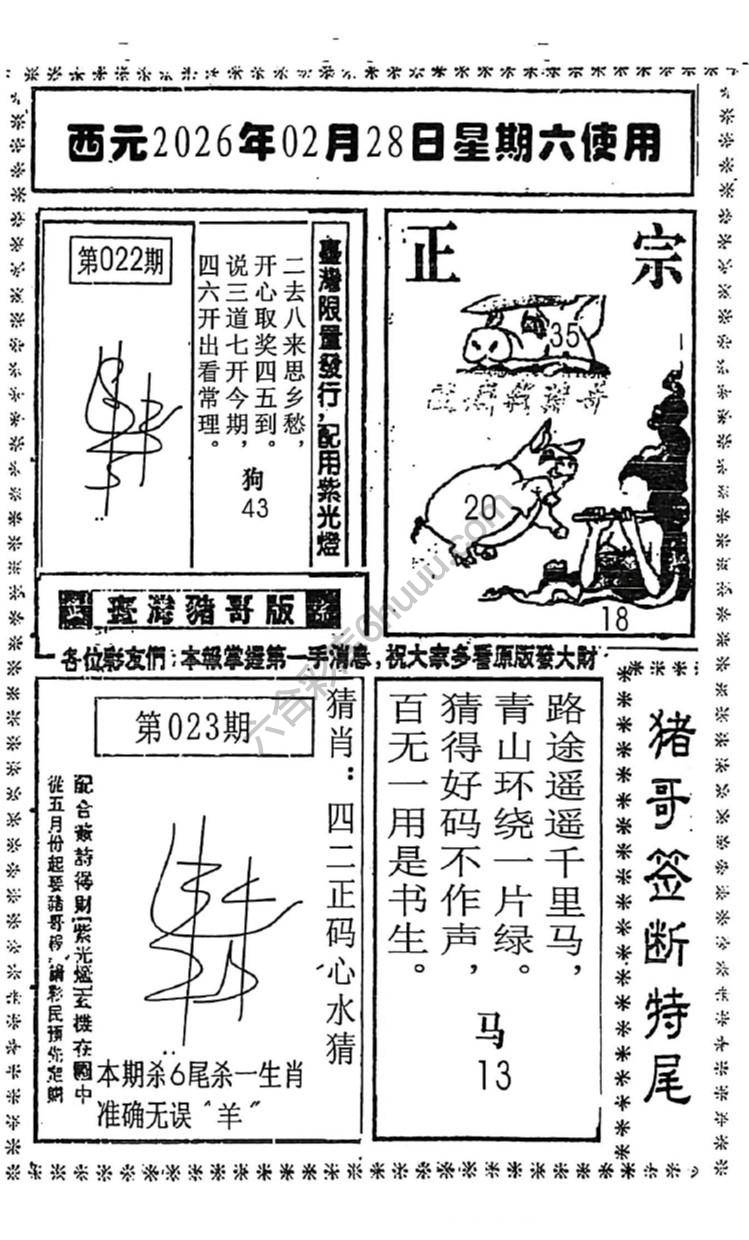 西元2026年02月28日星期六使用
第022期
二去八来思乡愁，
开心取奖四五到。
说三道七开今期，
四六开出看常理。
狗
43
臺灣限量發行，配用紫光燈
正宗
35
20
18
臺灣豬哥版
各位彩友們：本報掌握第一手消息，祝大家多看原版發大財
第023期
猜肖：四二正码心水猜
配合藏詩得財【紫光燈】玄機在圖中
本期杀6尾杀一生肖
准确无误“羊”
路途遥遥千里马，
青山环绕一片绿。
猜得好码不作声，
百无一用是书生。
马
13
猪哥签断特尾
六合彩库6huuu.com